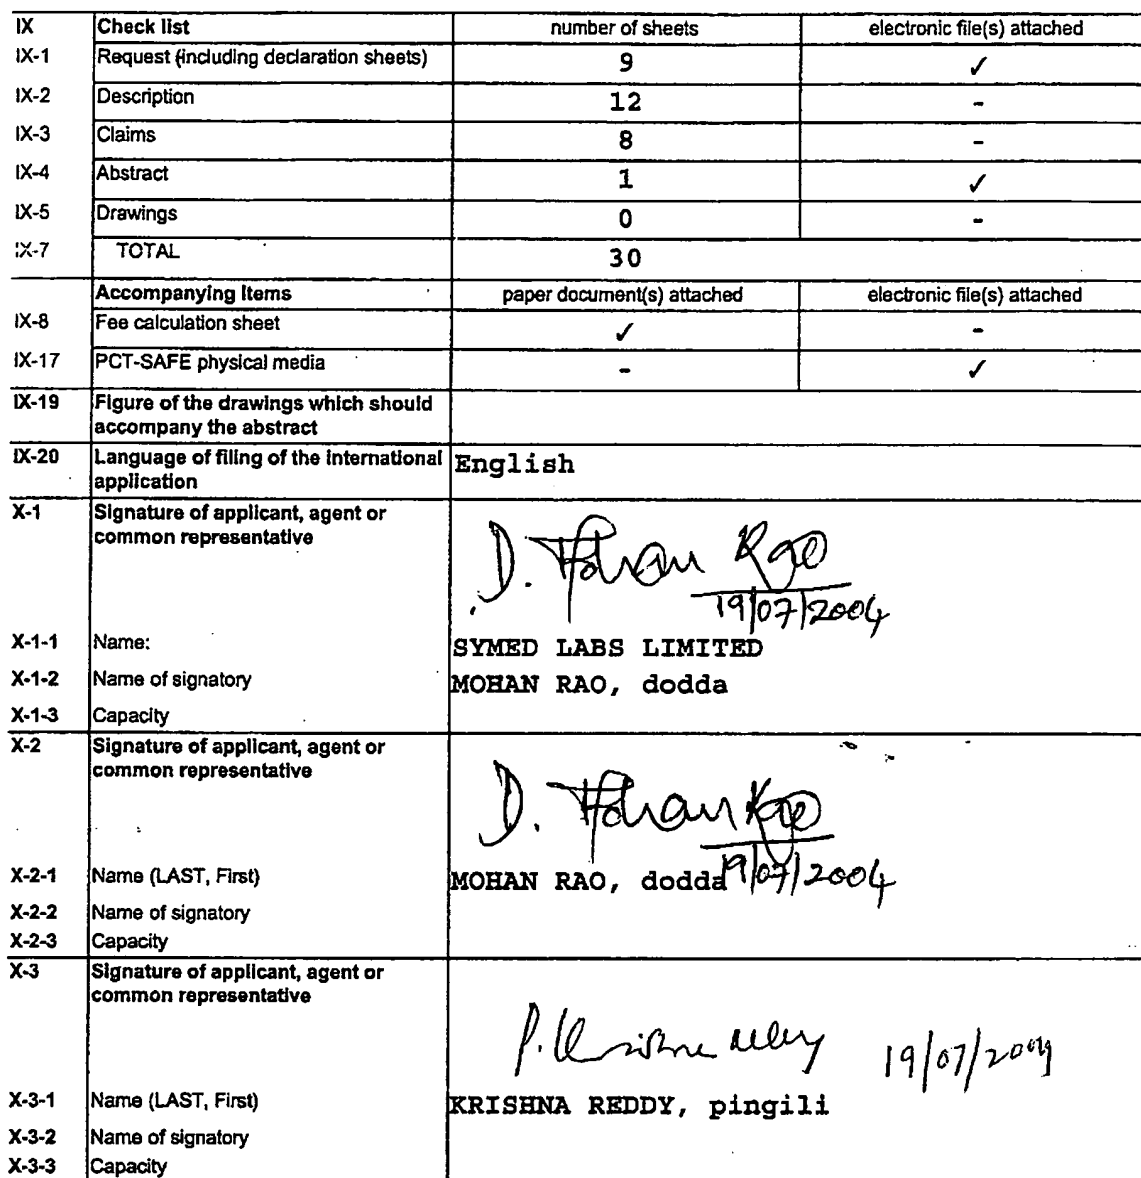 IX Check list number of sheets electronic file(s) attached
IX-1 Request (including declaration sheets) 9 ✓
IX-2 Description 12 -
IX-3 Claims 8 -
IX-4 Abstract 1 ✓
IX-5 Drawings 0 -
IX-7 TOTAL 30
Accompanying Items paper document(s) attached electronic file(s) attached
IX-8 Fee calculation sheet ✓ -
IX-17 PCT-SAFE physical media - ✓
IX-19 Figure of the drawings which should
accompany the abstract
IX-20 Language of filing of the international English
application
X-1 Signature of applicant, agent or
common representative
D. Mohan Rao
19/07/2004
X-1-1 Name: SYMED LABS LIMITED
X-1-2 Name of signatory MOHAN RAO, dodda
X-1-3 Capacity
X-2 Signature of applicant, agent or
common representative
D. Mohan Rao
19/07/2004
X-2-1 Name (LAST, First) MOHAN RAO, dodda
X-2-2 Name of signatory
X-2-3 Capacity
X-3 Signature of applicant, agent or
common representative
P. Krishna reddy 19/07/2004
X-3-1 Name (LAST, First) KRISHNA REDDY, pingili
X-3-2 Name of signatory
X-3-3 Capacity